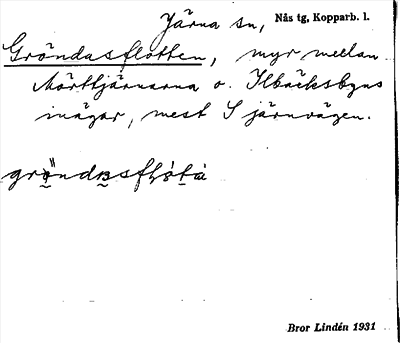 Järna sn, Nås tg, Kopparb. l.
Gröndasflotten, myr mellan
Mörttjärnarna o. Ilbäcksbyns
inägar, mest S järnvägen.
Bror Lindén 1931